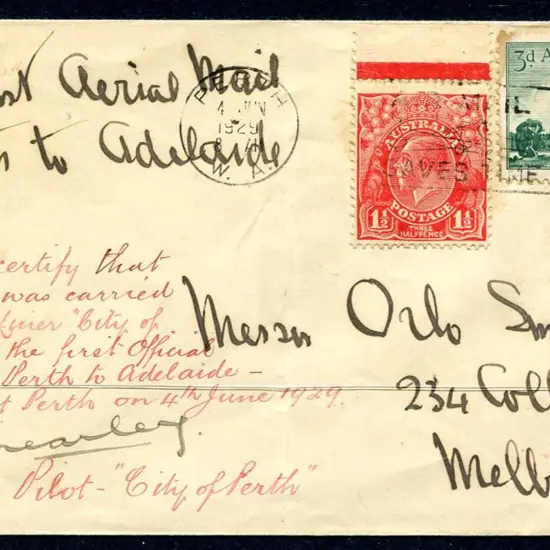 Aerial Mail
to Adelaide
PERTH
4 JUN
1929
W.A.
AUSTRALIA
POSTAGE
1½ 1½
THREE
HALFPENCE
3d A
certify that
was carried
Liner "City of
the first Official
Perth to Adelaide –
Perth on 4th June 1929.
Pilot – "City of Perth"
Messrs Orlo Sm
234 Coll
Melb